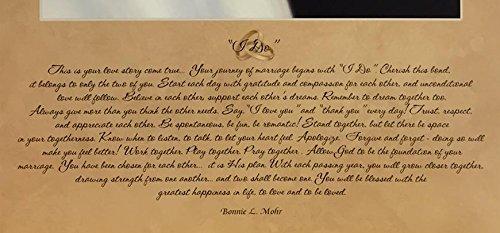 "I Do"
This is your love story come true... Your journey of marriage begins with "I Do." Cherish this bond,
it belongs to only the two of you. Start each day with gratitude and compassion for each other, and unconditional
love will follow. Believe in each other, support each other's dreams. Remember to dream together too.
Always give more than you think the other needs. Say, "I love you" and "thank you" every day! Trust, respect,
and appreciate each other. Be spontaneous, be fun, be romantic! Stand together, but let there be space
in your togetherness. Know when to listen, to talk, to let your heart feel. Apologize. Forgive and forget - doing so will
make you feel better! Work together. Play together. Pray together. Allow God to be the foundation of your
marriage. You have been chosen for each other... it is His plan. With each passing year, you will grow closer together,
drawing strength from one another... and two shall become one. You will be blessed with the
greatest happiness in life, to love and to be loved.
Bonnie L. Mohr